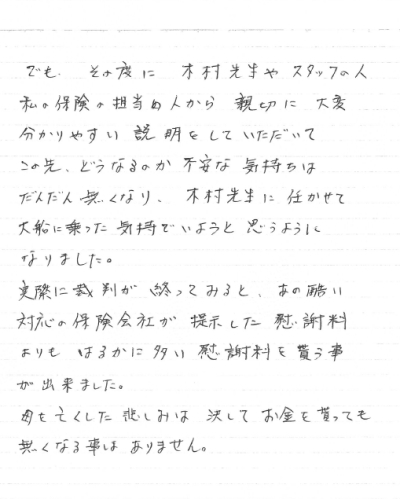 でも、その度に 木村先生や スタッフの人
私の保険の担当の人から 親切に 大変
分かりやすい 説明をしていただいて
この先、どうなるのか 不安な 気持ちは
だんだん無くなり、木村先生に 任かせて
大船に乗った気持でいようと 思うように
なりました。
実際に裁判が 終ってみると、あの酷い
対応の保険会社が 提示した 慰謝料
よりも はるかに多い 慰謝料を貰う事
が出来ました。
母を亡くした悲しみは 決して お金を貰っても
無くなる事は ありません。